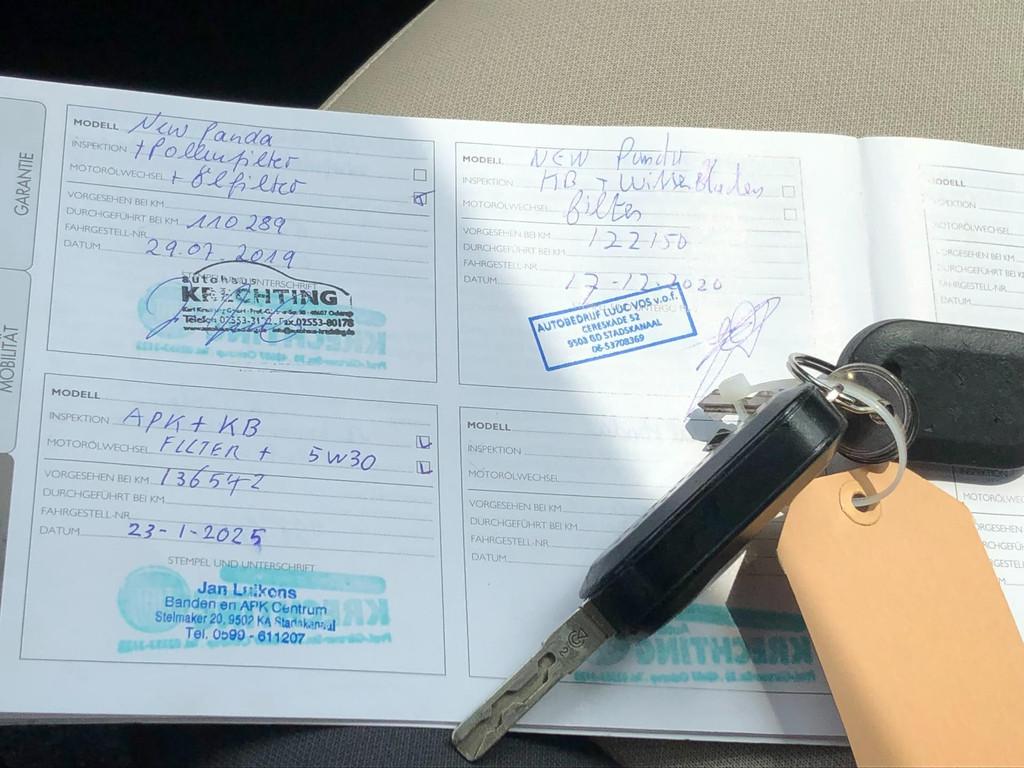 GARANTIE
MOBILITÄT
MODELL New Panda
INSPEKTION +Pollenfilter
MOTORÖLWECHSEL + Ölfilter
VORGESEHEN BEI KM
DURCHGEFÜHRT BEI KM 110 289
FAHRGESTELL-NR.
DATUM 29.07.2019
STEMPEL UND UNTERSCHRIFT
autohaus
KRECHTING
Telefon 02553- Fax 02553-80178
MODELL NEW Panda
INSPEKTION KB +
MOTORÖLWECHSEL filter
VORGESEHEN BEI KM 122150
DURCHGEFÜHRT BEI KM
FAHRGESTELL-NR.
DATUM 17-12-2020
AUTOBEDRIJF LUUC VOS v.o.f.
CERESKADE 52
9503 BD STADSKANAAL
06-53708369
MODELL
INSPEKTION APK + KB
MOTORÖLWECHSEL FILTER + 5W30
VORGESEHEN BEI KM 136542
DURCHGEFÜHRT BEI KM
FAHRGESTELL-NR.
DATUM 23-1-2025
STEMPEL UND UNTERSCHRIFT
Jan Luikens
Banden en APK Centrum
Stelmaker 20, 9502 KA Stadskanaal
Tel. 0599 - 611207
MODELL
INSPEKTION
MOTORÖLWECHSEL
VORGESEHEN BEI KM
DURCHGEFÜHRT BEI KM
FAHRGESTELL-NR.
DATUM
KRECHTING